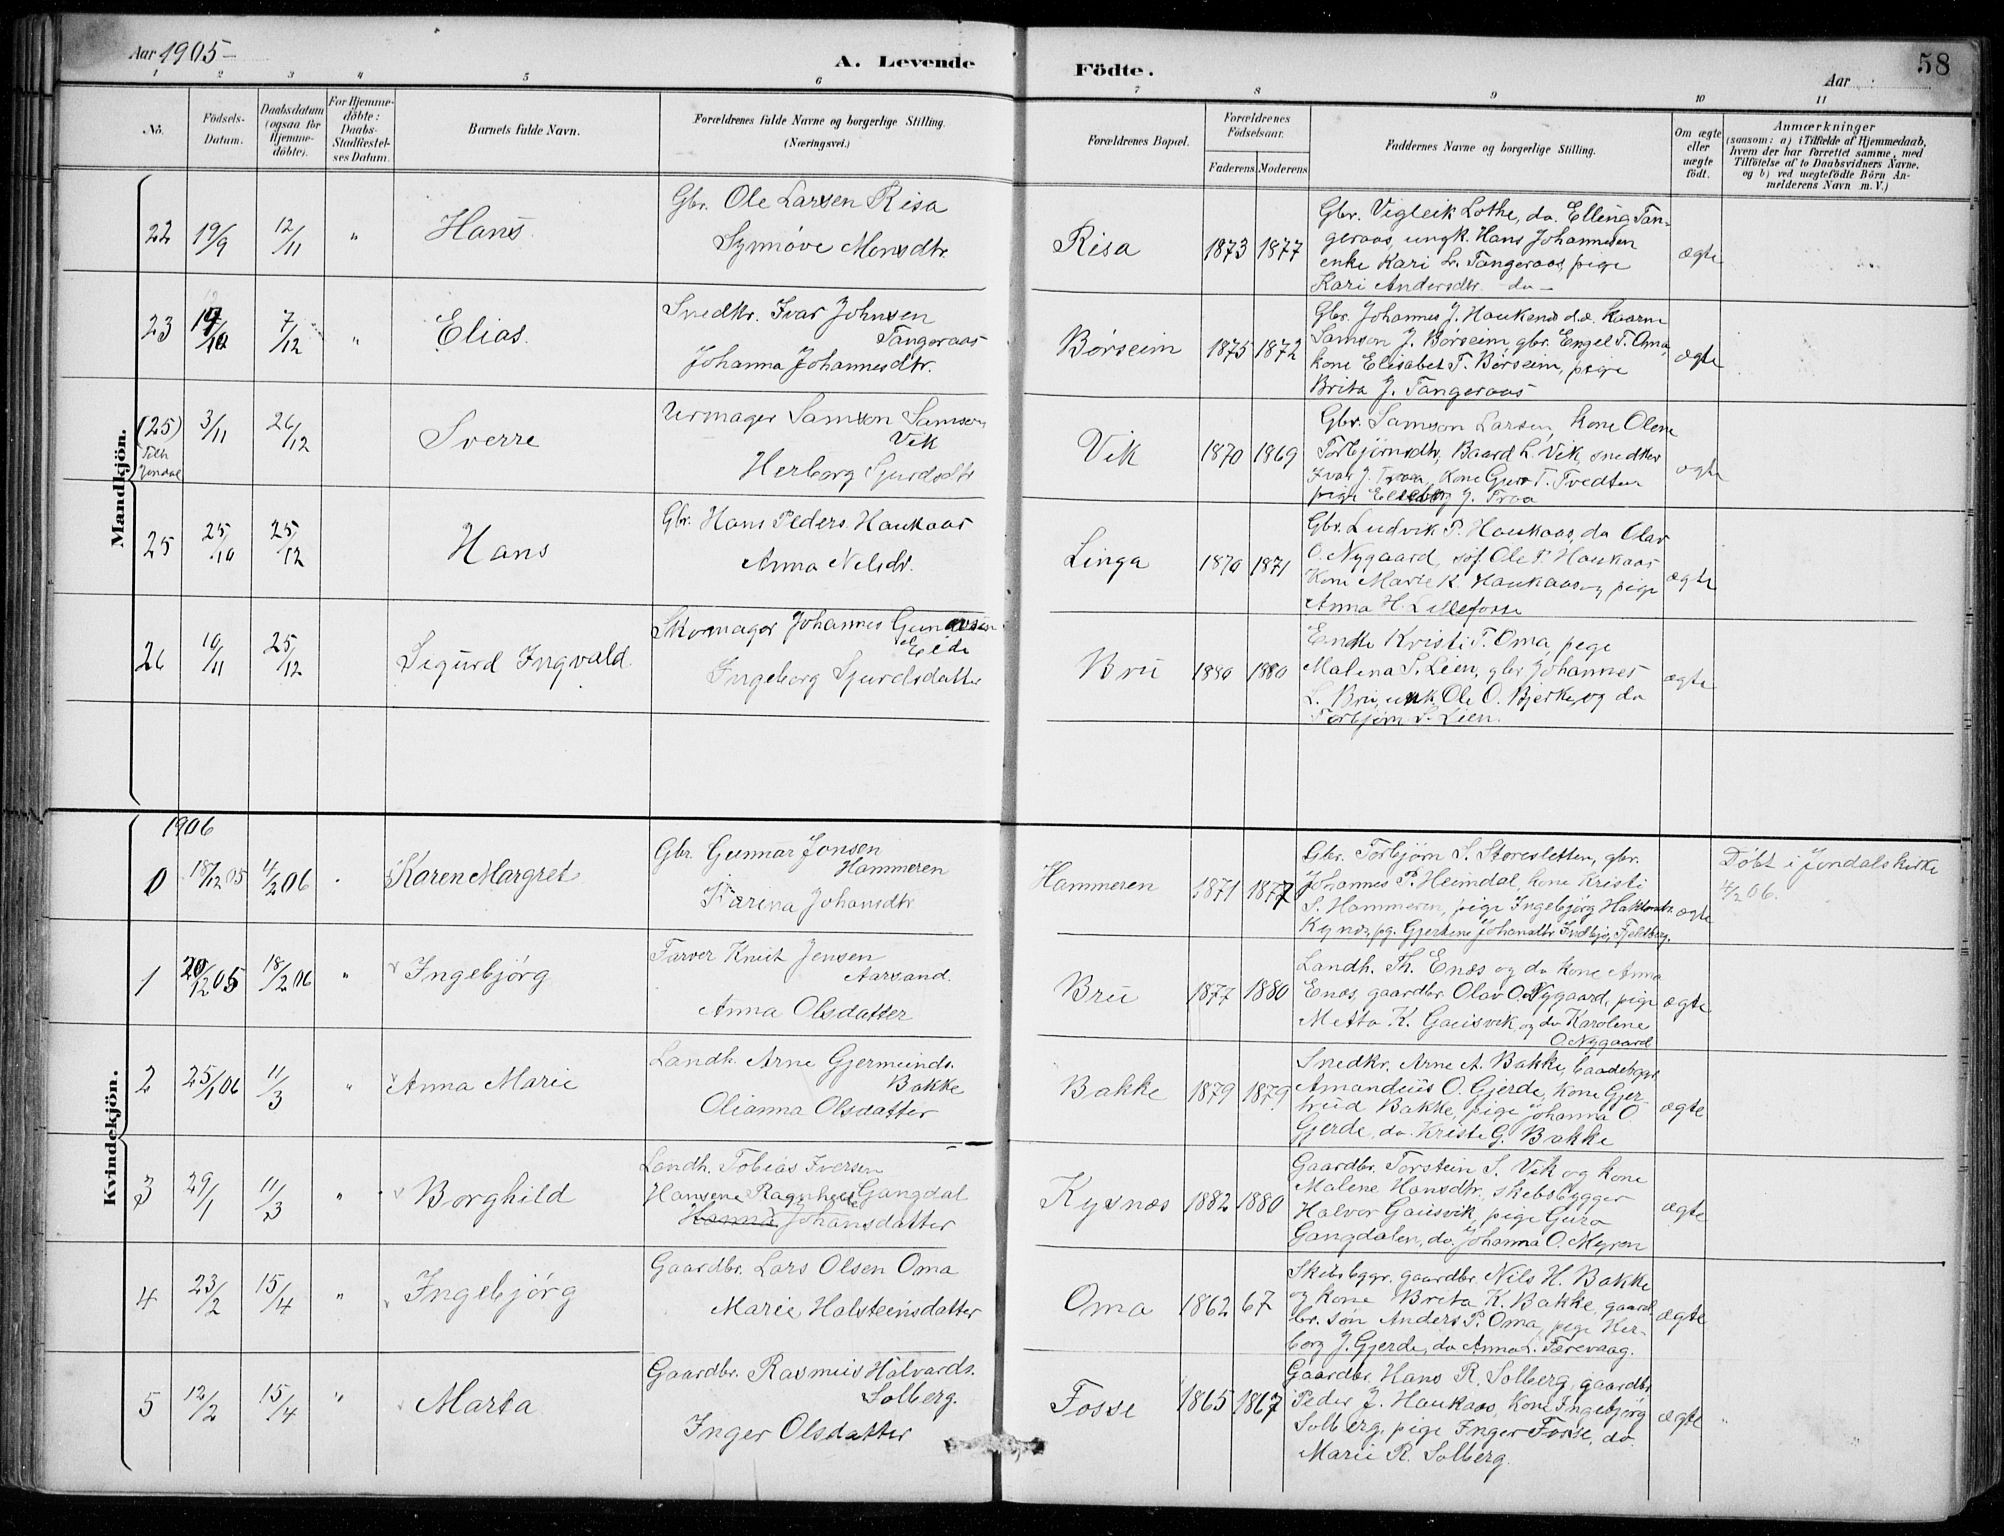 Aar 1905
A. Levende
Födte.
Aar
58
1 2 3 4 5 6 7 8 9 10 11
No.
Födsels-
Datum.
Daabsdatum
(ogsaa for
Hjemme-
döbte).
For Hjemme-
döbte:
Daabs-
Stadfæstel-
ses Datum.
Barnets fulde Navn.
Forældrenes fulde Navne og borgerlige Stilling.
(Næringsvei.)
Forældrenes Bopæl.
Forældrenes
Födselsaar.
Faderens Moderens
Faddernes Navne og borgerlige Stilling.
Om ægte
eller
uægte
födt.
Anmærkninger
(saasom: a) i Tilfælde af Hjemmedaab,
hvem der har forrettet samme, med
Tilföielse af to Daabsvidners Navne,
og b) ved uægtefödte Börn An-
melderens Navn m. V.)
Mandkjön.
22 19/9 12/11 " Hans
Gbr. Ole Larsen Risa
Synnøve Monsdtr.
Risa 1873 1877
Gbr. Vigleik Lothe, do. Elling Tan-
geraas, ungk. Hans Johannesen
enke Kari L. Tangeraas, pige
Kari Andersdtr. do
ægte
23 /10 7/12 " Elias.
Snedkr. Ivar Johnsen
Tangeraas
Johanna Johannesdtr.
Børseim 1875 1872
Gbr. Johannes J. Haukenes
Samson J. Børseim gbr. Engel T. Oma,
kone Elisabet T. Børseim, pige
Brita J. Tangeraas
ægte
(25) 3/11 26/12 Sverre
Jondal
Urmager Samson Samson
Vik
Herborg Sjurdsdtr
Vik 1870 1869
Gbr. Samson Larsen, kone Olene
Torbjørnsdtr, Baard L. Vik, snedker
Ivar J. Troa, kone Guro T. Tvedten
pige J. Troa
ægte
25 25/10 25/12 Hans
Gbr. Hans Peders. Haukaas
Anna Nelsdr.
Linga 1870 1871
Gbr. Ludvik P. Haukaas, do Olav
O. Nygaard, Ole P. Haukaas
Kone Marie K. Haukaas og pige
Anna H. Lilleforse
ægte
26 /11 25/12 Sigurd Ingvald.
Skomager Johannes
Eide
Ingeborg Sjurdsdatter
Bru 1880 1880
Enke Kristi T. Oma, pige
Malena S. Lien, gbr Johannes
L. Bru, unk. Ole O. Bjerke, og do
Torbjørn S. Lien.
ægte
Kvindekjön.
1906
0 18/12 05 11/2 06 Karen Margret
Gbr. Gunnar Jonsen
Hammeren
Karina Johansdtr
Hammeren 1871 1877
Gbr. Torbjørn S. Storesletten, gbr.
Johannes P. Heimdal, kone Kristi
S. Hammeren, pige Ingebjørg
Kysnes, pg. Gjertine Johansdtr
ægte
Døbt i Jondals kirke
11/2 06.
1 20/12 05 18/2 06 " Ingebjørg
Farver Knut Jensen
Aarsand.
Anna Olsdatter
Bru 1877 1880
Landh. Th. Enæs og do kone Anna
Enæs, gaardbr. Olav O. Nygaard, pige
Metta K. Gausvik, og do Karolene
O. Nygaard
ægte
2 25/1 06 11/3 " Anna Marie
Landh. Arne Gjermunds.
Bakke
Olianna Olsdatter
Bakke 1879 1879
Snedkr. Arne A. Bakke, baadebgr.
Amandeus O. Gjerde, kone Gjer-
trud Bakke, pige Johanna O.
Gjerde, do. Kristi G. Bakke
ægte
3 29/1 11/3 " Borghild
Landh. Tobias Iversen
Hansene Ragnhild Gangdal
Johansdatter
Kysnæs 1882 1880
Gaardbr. Torstein S. Vik og kone
Malene Hansdtr, skibsbygger
Halvor Gausvik, pige Guro
Gangdalen, do. Johanna O. Myren
ægte
4 23/2 15/4 " Ingebjørg
Gaardbr. Lars Olsen Oma
Marie Halsteinsdatter
Oma 1862 67
Skibsbggr. gaardbr. Nils H. Bakke
og kone Brita K. Bakke, gaard-
br. søn Anders P. Oma, pige Her-
borg J. Gjerde, do Anna L. Færevaag.
ægte
5 12/2 15/4 " Marta
Gaardbr. Rasmus Halvards.
Solberg.
Inger Olsdatter
Fosse 1865 1867
Gaardbr. Hans R. Solberg, gaardbr
Peder J. Haukaas, kone Ingebjørg
Solberg, pige Inger Fosse, do.
Marie R. Solberg.
ægte "